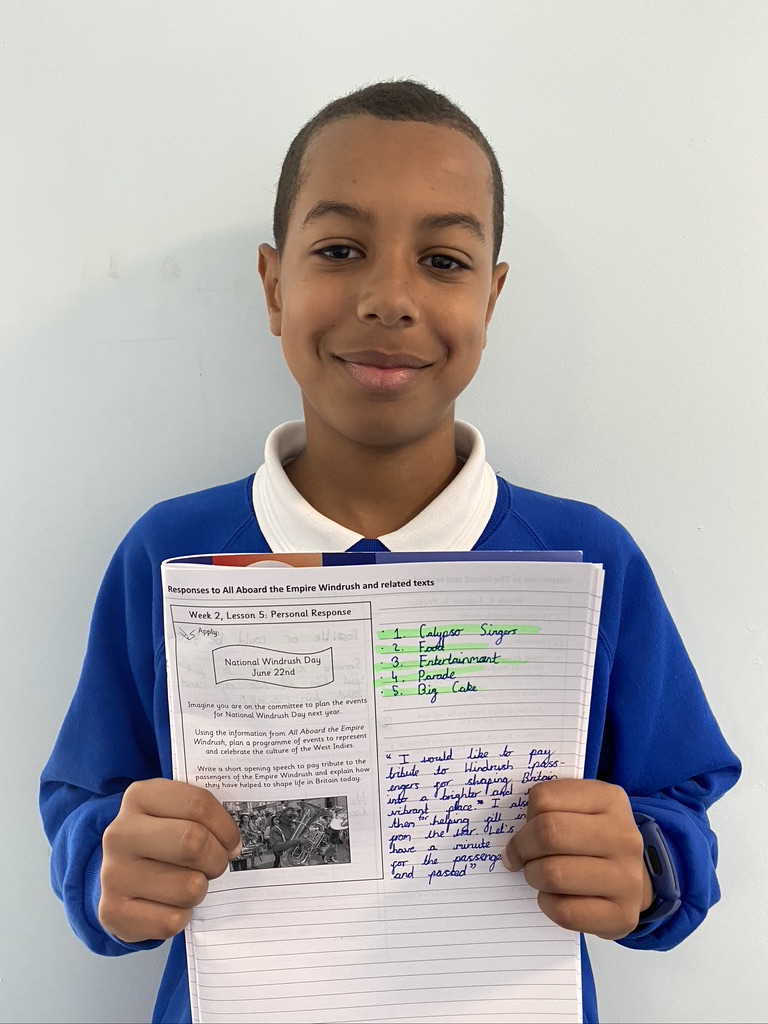 Responses to All Aboard the Empire Windrush and related texts
Week 2, Lesson 5: Personal Response
Apply:
National Windrush Day
June 22nd
Imagine you are on the committee to plan the events
for National Windrush Day next year.
Using the information from All Aboard the Empire
Windrush, plan a programme of events to represent
and celebrate the culture of the West Indies.
Write a short opening speech to pay tribute to the
passengers of the Empire Windrush and explain how
they have helped to shape life in Britain today.
1. Calypso Singers
2. Food
3. Entertainment
4. Parade
5. Big Cake
"I would like to pay
tribute to Windrush pass-
engers for shaping Britain
into a brighter and
vibrant place." I also
for helping fill in
the war. Let's
have a minute
for the
and passed"